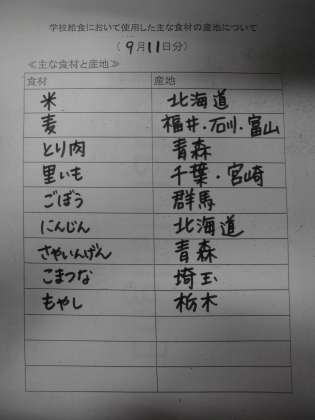 学校給食において使用した主な食材の産地について
(9月11日分)
≪主な食材と産地≫
食材 産地
米 北海道
麦 福井・石川・富山
とり肉 青森
里いも 千葉・宮崎
ごぼう 群馬
にんじん 北海道
さやいんげん 青森
こまつな 埼玉
もやし 栃木